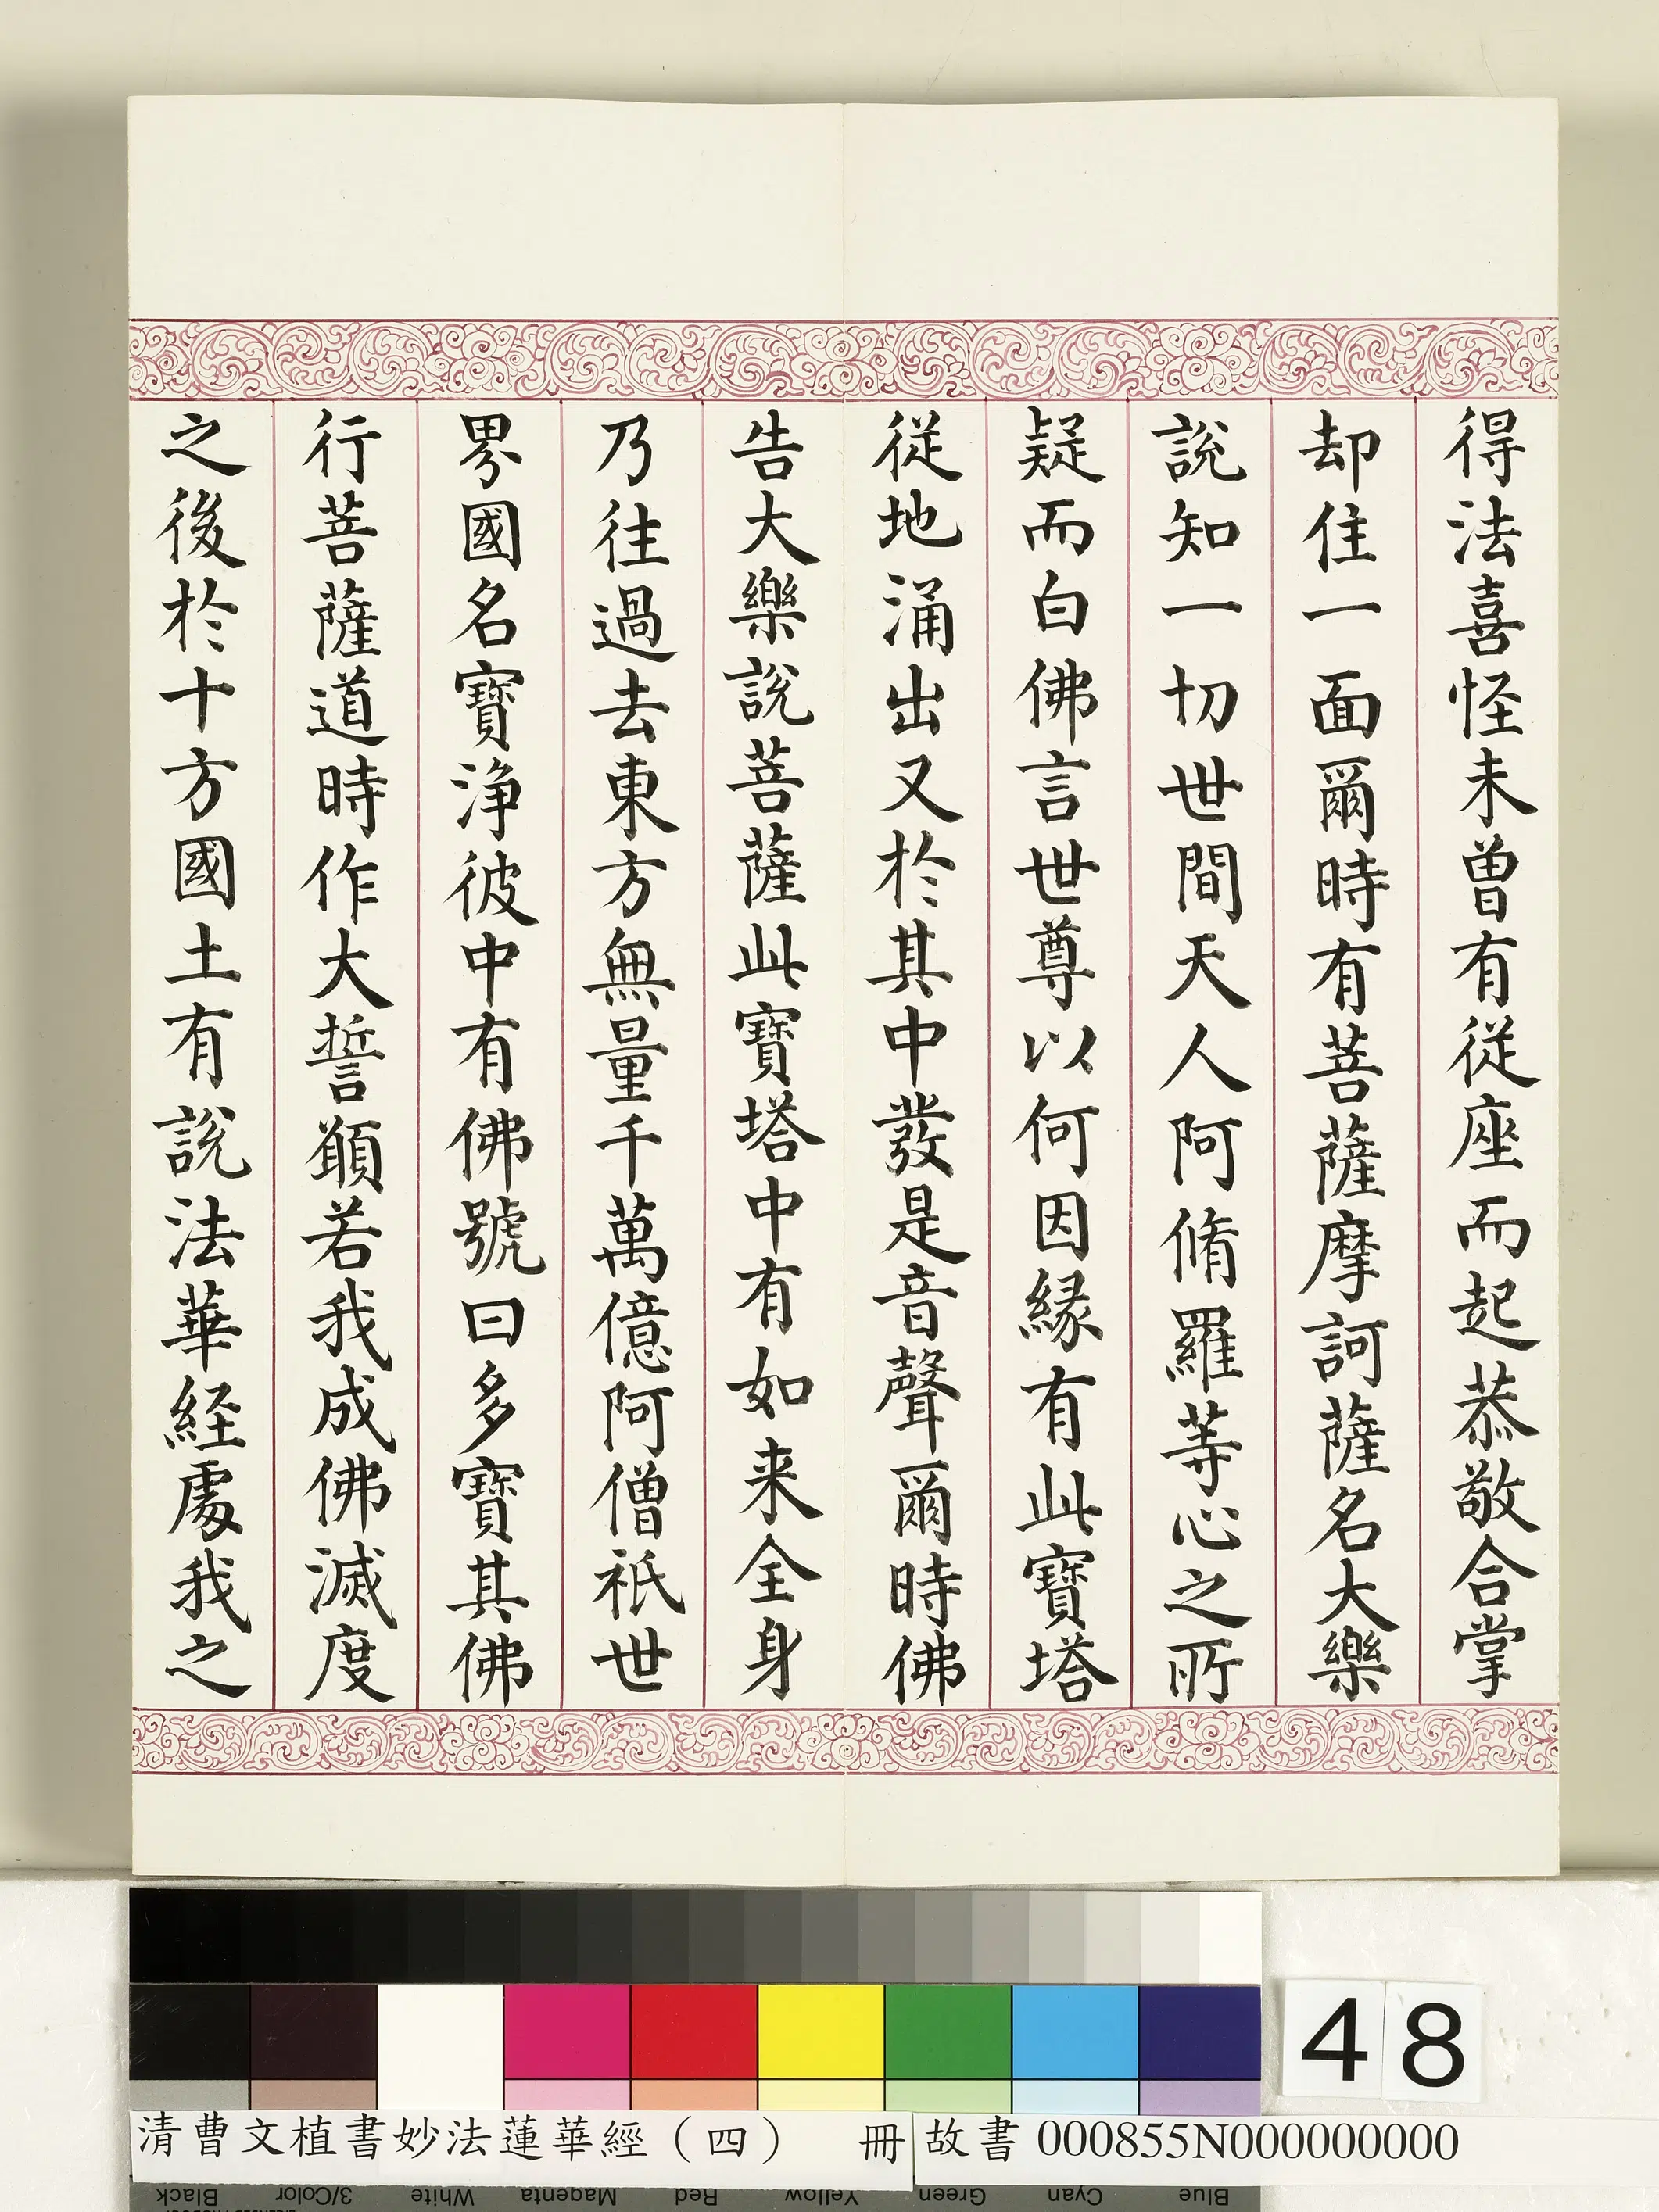 得法喜怪未曽有従座而起恭敬合掌
却住一面爾時有菩薩摩訶薩名大樂
說知一切世間天人阿脩羅等心之所
疑而白佛言世尊以何因緣有此寶塔
從地涌出又於其中發是音聲爾時佛
告大樂說菩薩此寶塔中有如来全身
乃往過去東方無量千萬億阿僧祇世
界國名寶淨彼中有佛號曰多寶其佛
行菩薩道時作大誓願若我成佛滅度
之後於十方國土有說法華経處我之
48
清曹文植書妙法蓮華經（四） 冊 故書 000855N000000000
Black 3/Color White Magenta Red Yellow Green Cyan Blue